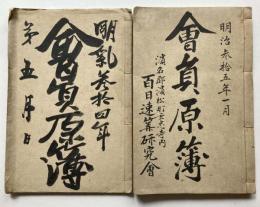 明治参拾五年一月
會員原簿
濱名郡濱松町
百日速算研究會
明治参拾四年
會員原簿
第五月日